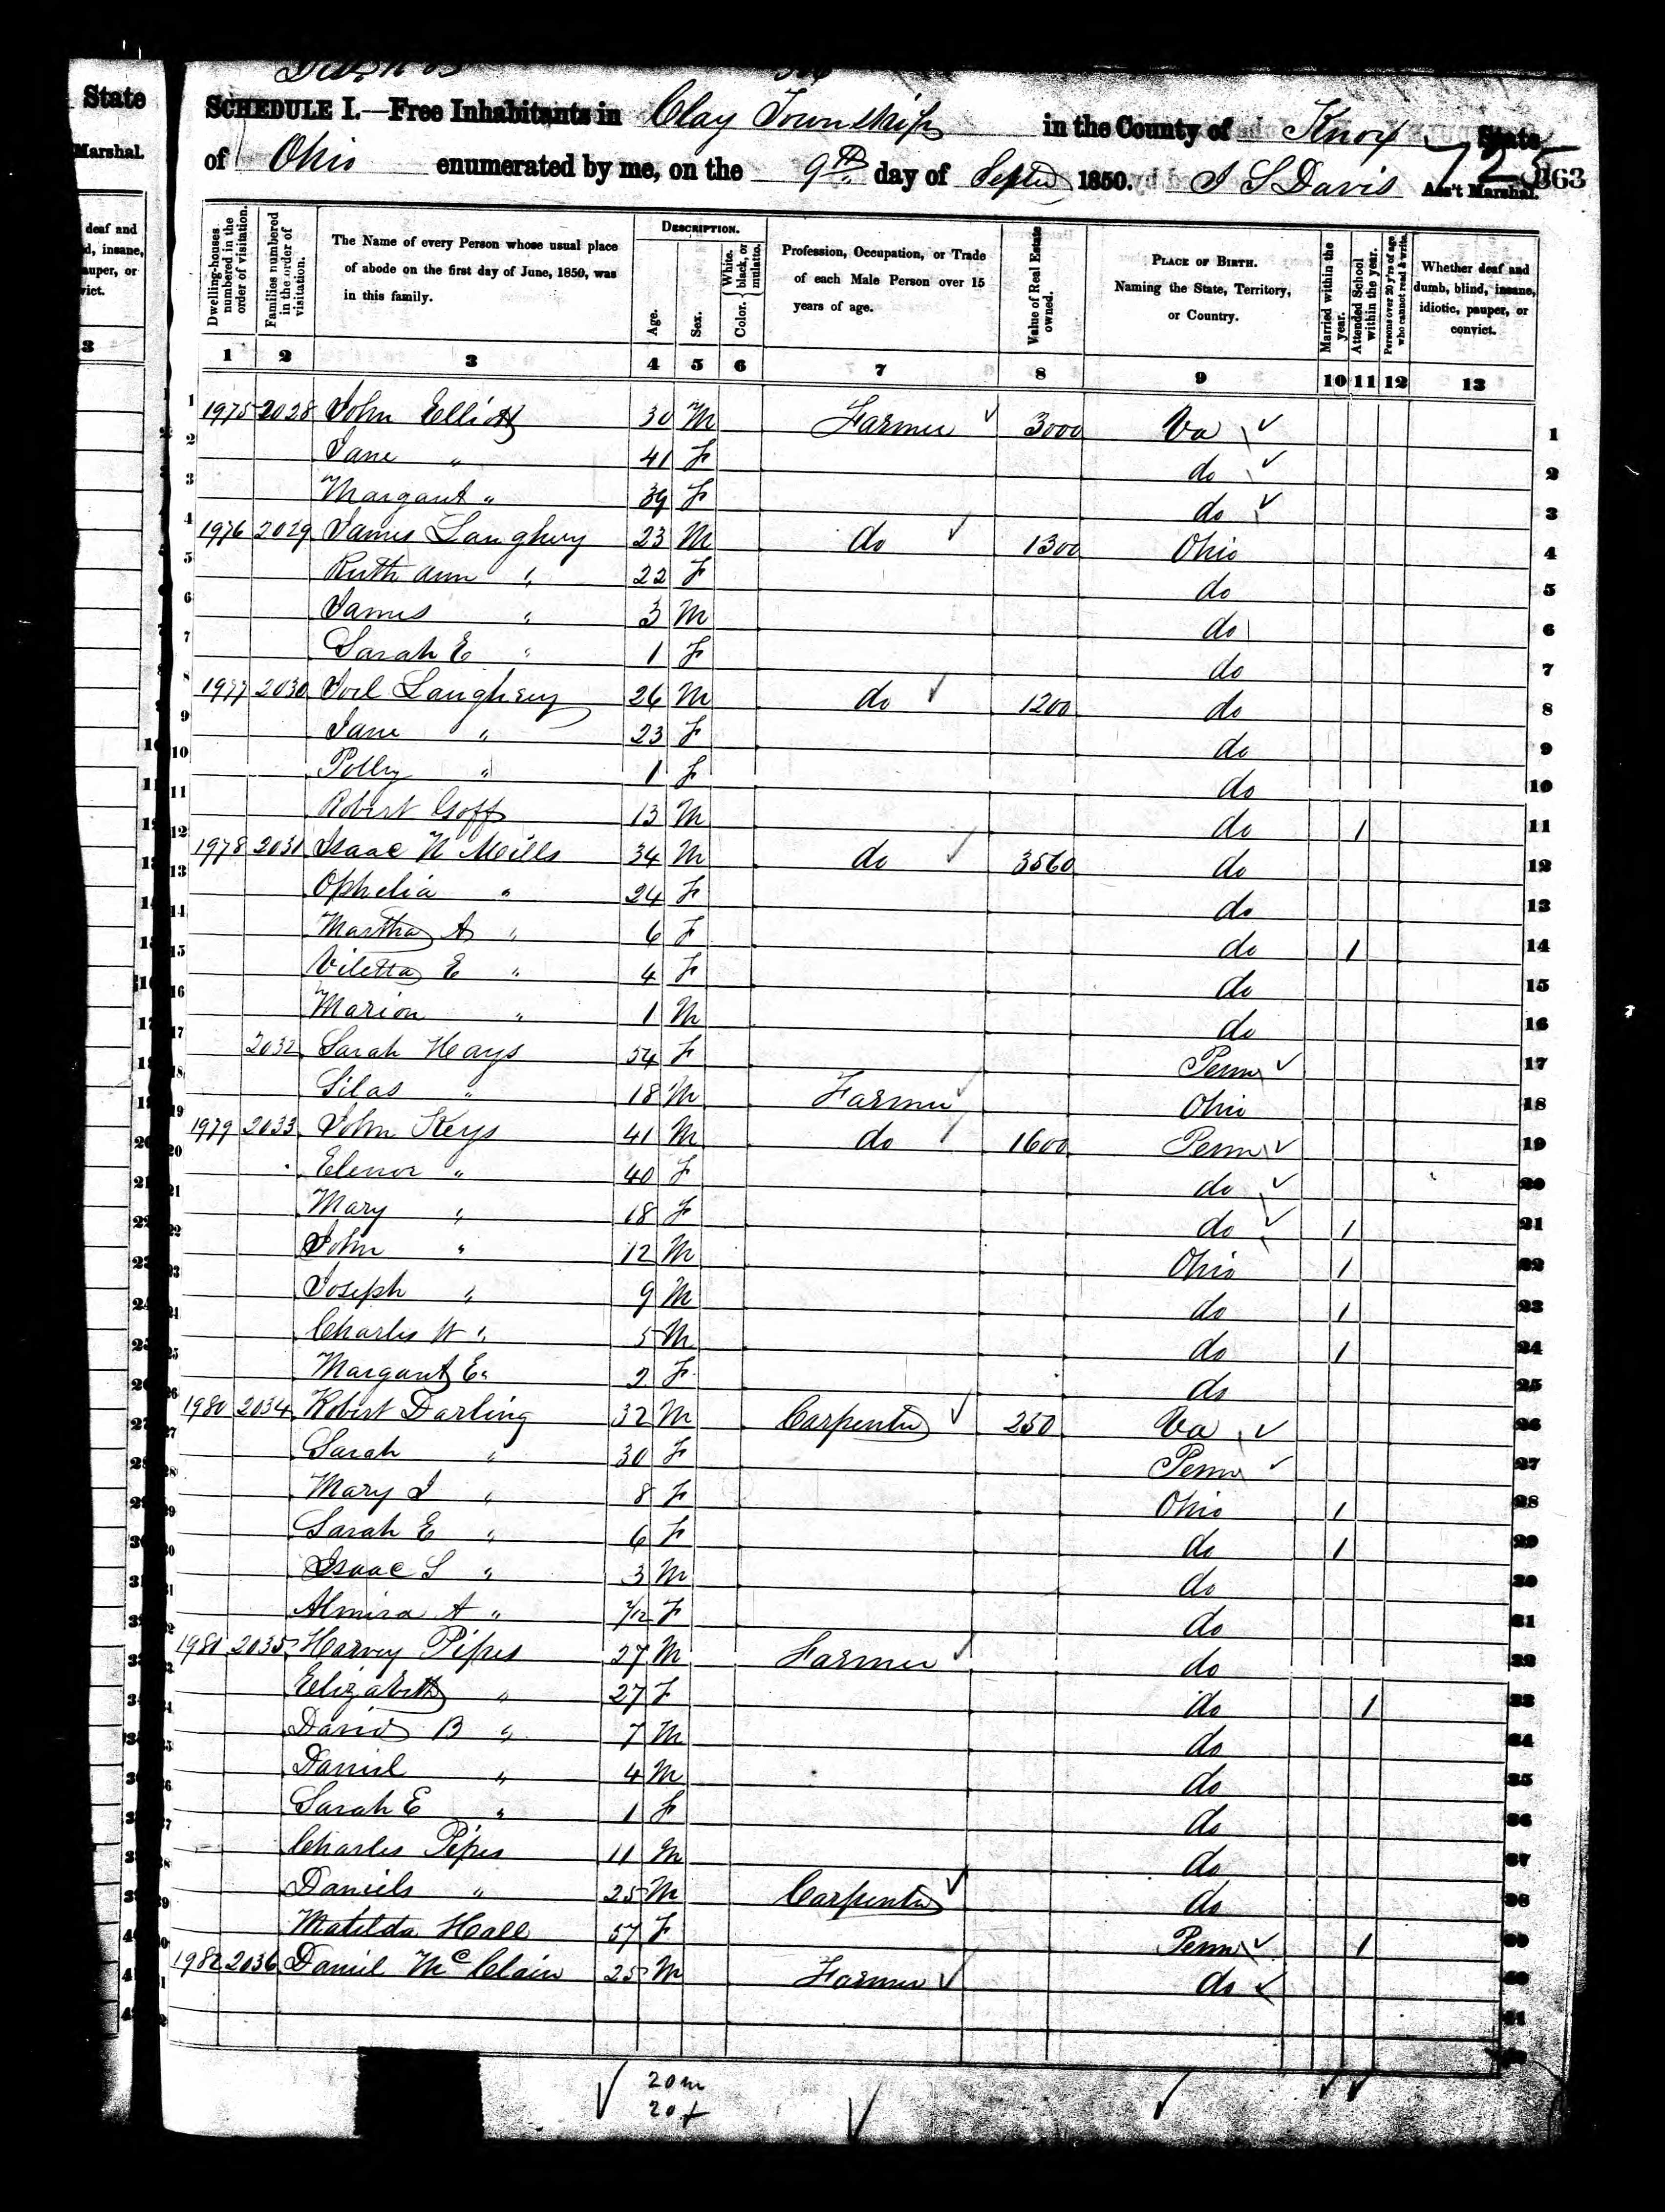 State
Marshal.
deaf and
d, insane,
auper, or
vict.
3
SCHEDULE I.—Free Inhabitants in Clay Township in the County of Knox State
of Ohio enumerated by me, on the 9th day of Septr 1850. I S Davis Ass't Marshal.
725
363
Dwelling-houses numbered in the order of visitation.
Families numbered in the order of visitation.
The Name of every Person whose usual place of abode on the first day of June, 1850, was in this family.
DESCRIPTION.
Age.
Sex.
Color. White, black, or mulatto.
Profession, Occupation, or Trade of each Male Person over 15 years of age.
Value of Real Estate owned.
PLACE OF BIRTH.
Naming the State, Territory, or Country.
Married within the year.
Attended School within the year.
Persons over 20 y'rs of age who cannot read & write.
Whether deaf and dumb, blind, insane, idiotic, pauper, or convict.
1 2 3 4 5 6 7 8 9 10 11 12 13
1 1975 2028 John Elliott 30 M Farmer 3000 Va 1
2 Jane " 41 F do 2
3 Margaret " 39 F do 3
4 1976 2029 James Laughrey 23 M do 1300 Ohio 4
5 Ruth Ann " 22 F do 5
6 James " 3 M do 6
7 Sarah E " 1 F do 7
8 1977 2030 Joel Laughrey 26 M do 1200 do 8
9 Jane " 23 F do 9
10 Polly " 1 F do 10
11 Robert Goff 13 M do 1 11
12 1978 2031 Isaac N Mills 34 M do 3560 do 12
13 Ophelia " 24 F do 13
14 Martha A " 6 F do 1 14
15 Viletta E " 4 F do 15
16 Marion " 1 M do 16
17 2032 Sarah Hays 54 F Penn 17
18 Silas " 18 M Farmer Ohio 18
19 1979 2033 John Keys 41 M do 1600 Penn 19
20 Elenor " 40 F do 20
21 Mary " 18 F do 1 21
22 John " 12 M Ohio 1 22
23 Joseph " 9 M do 1 23
24 Charles W " 5 M do 1 24
25 Margaret E " 2 F do 25
26 1980 2034 Robert Darling 32 M Carpenter 250 Va 26
27 Sarah " 30 F Penn 27
28 Mary J " 8 F Ohio 1 28
29 Sarah E " 6 F do 1 29
30 Isaac S " 3 M do 30
31 Almira A " 7/12 F do 31
32 1981 2035 Harvey Pipes 27 M Farmer do 32
33 Elizabeth " 27 F do 1 33
34 David B " 7 M do 34
35 Daniel " 4 M do 35
36 Sarah E " 1 F do 36
37 Charles Pipes 11 M do 37
38 Daniels " 25 M Carpenter do 38
39 Matilda Hall 57 F Penn 1 39
40 1982 2036 Daniel McClain 25 M Farmer do 40
41
20 m
20 f